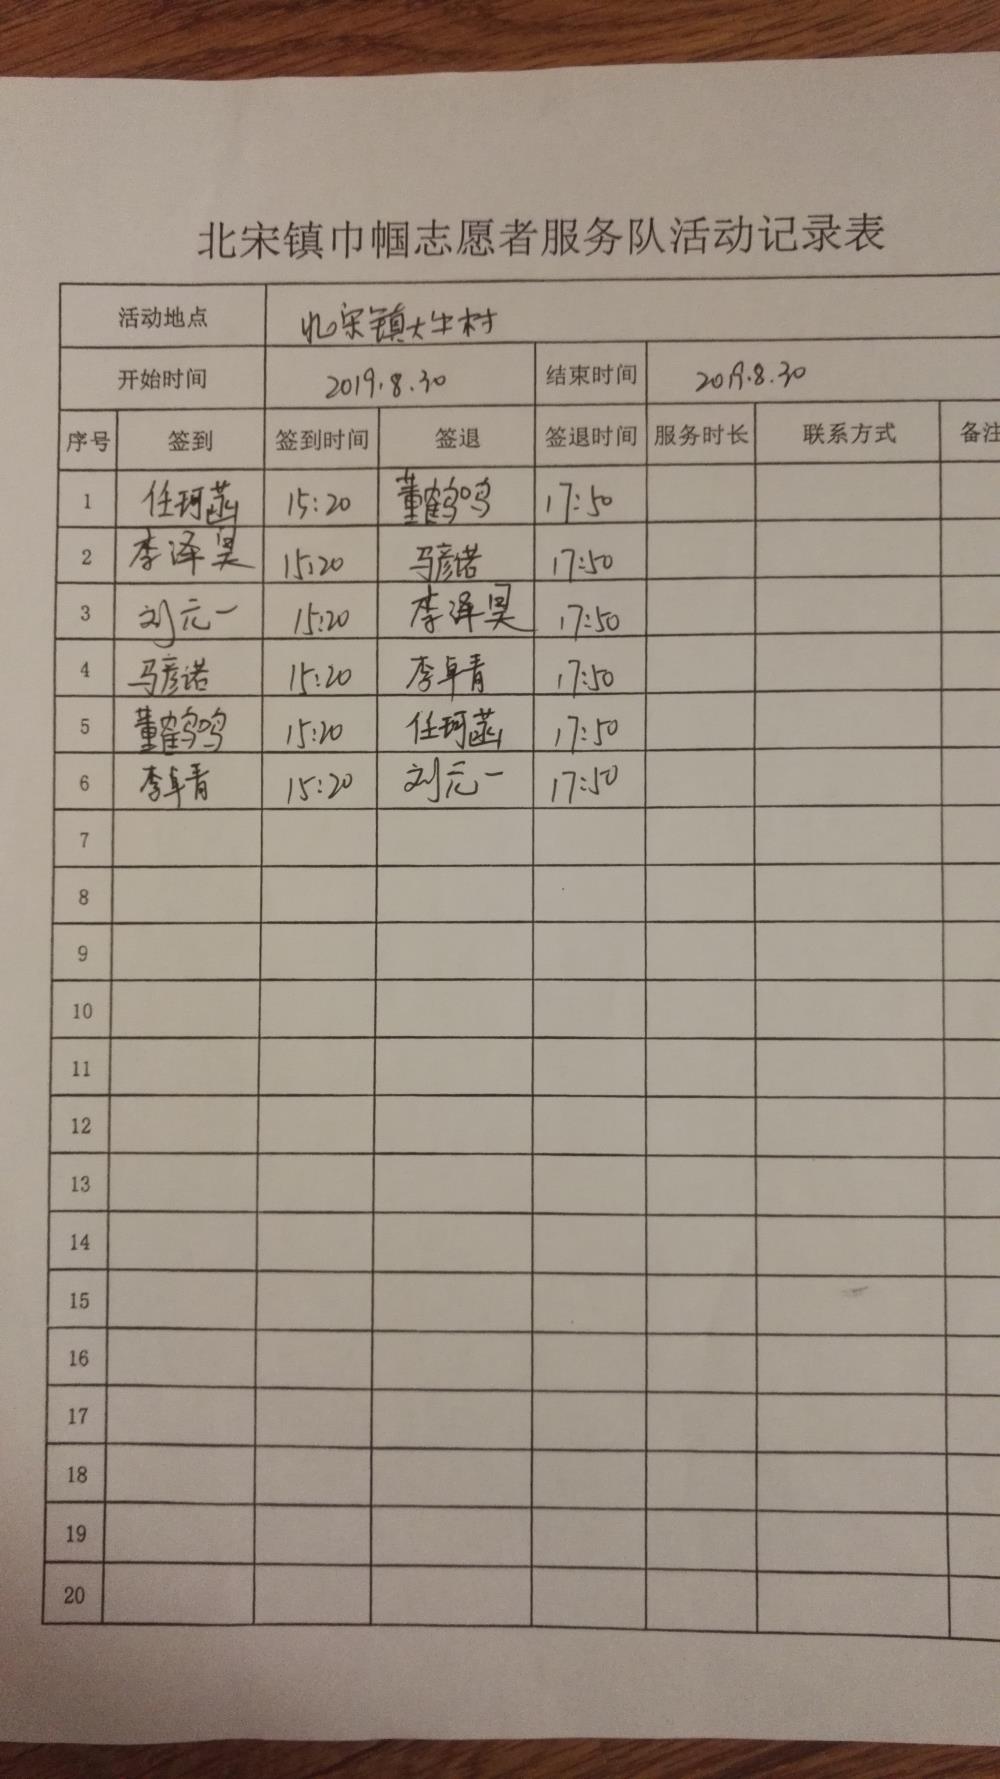 北宋镇巾帼志愿者服务队活动记录表
活动地点 北宋镇大牛村
开始时间 2019.8.30 结束时间 2019.8.30
序号 签到 签到时间 签退 签退时间 服务时长 联系方式 备注
1 任珂菡 15:20 董鹤鸣 17:50
2 李泽昊 15:20 马彦诺 17:50
3 刘元一 15:20 李泽昊 17:50
4 马彦诺 15:20 李卓青 17:50
5 董鹤鸣 15:20 任珂菡 17:50
6 李卓青 15:20 刘元一 17:50
7
8
9
10
11
12
13
14
15
16
17
18
19
20